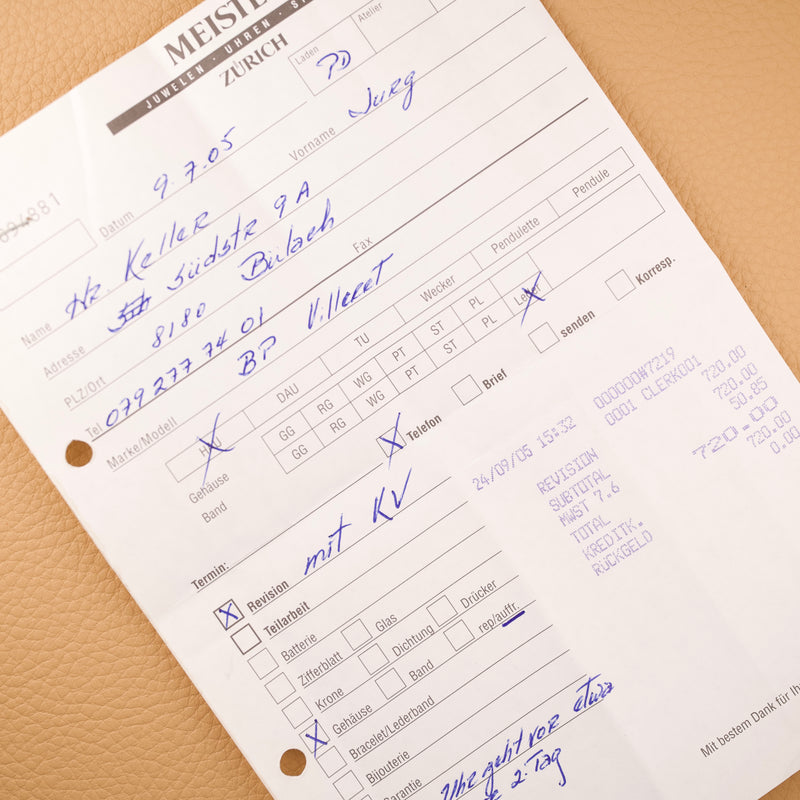 MEISTE
JUWELEN · UHREN · S
ZÜRICH
Laden
PD
Atelier
881
Datum 9.7.05
Vorname Jürg
Name Hr. Keller
Adresse Südstr 9A
PLZ/Ort 8180 Bülach
Fax
Tel 079 277 74 01
Marke/Modell BP Villeret
HAU DAU TU Wecker Pendulette Pendule
Gehäuse GG RG WG PT ST PL Leder
Band GG RG WG PT ST PL
X Telefon Brief senden Korresp.
Termin: mit KV
X Revision
Teilarbeit
Batterie Glas Drücker
Zifferblatt Dichtung rep/auffr.
Krone Band
X Gehäuse
Bracelet/Lederband
Bijouterie
Garantie
Uhr geht vor etwa
2. Tag
000000#7219
24/09/05 15:32 0001 CLERK001
REVISION 720.00
SUBTOTAL 720.00
MWST 7.6 50.85
TOTAL 720.00
KREDITK. 720.00
RÜCKGELD 0.00
Mit bestem Dank für Ih